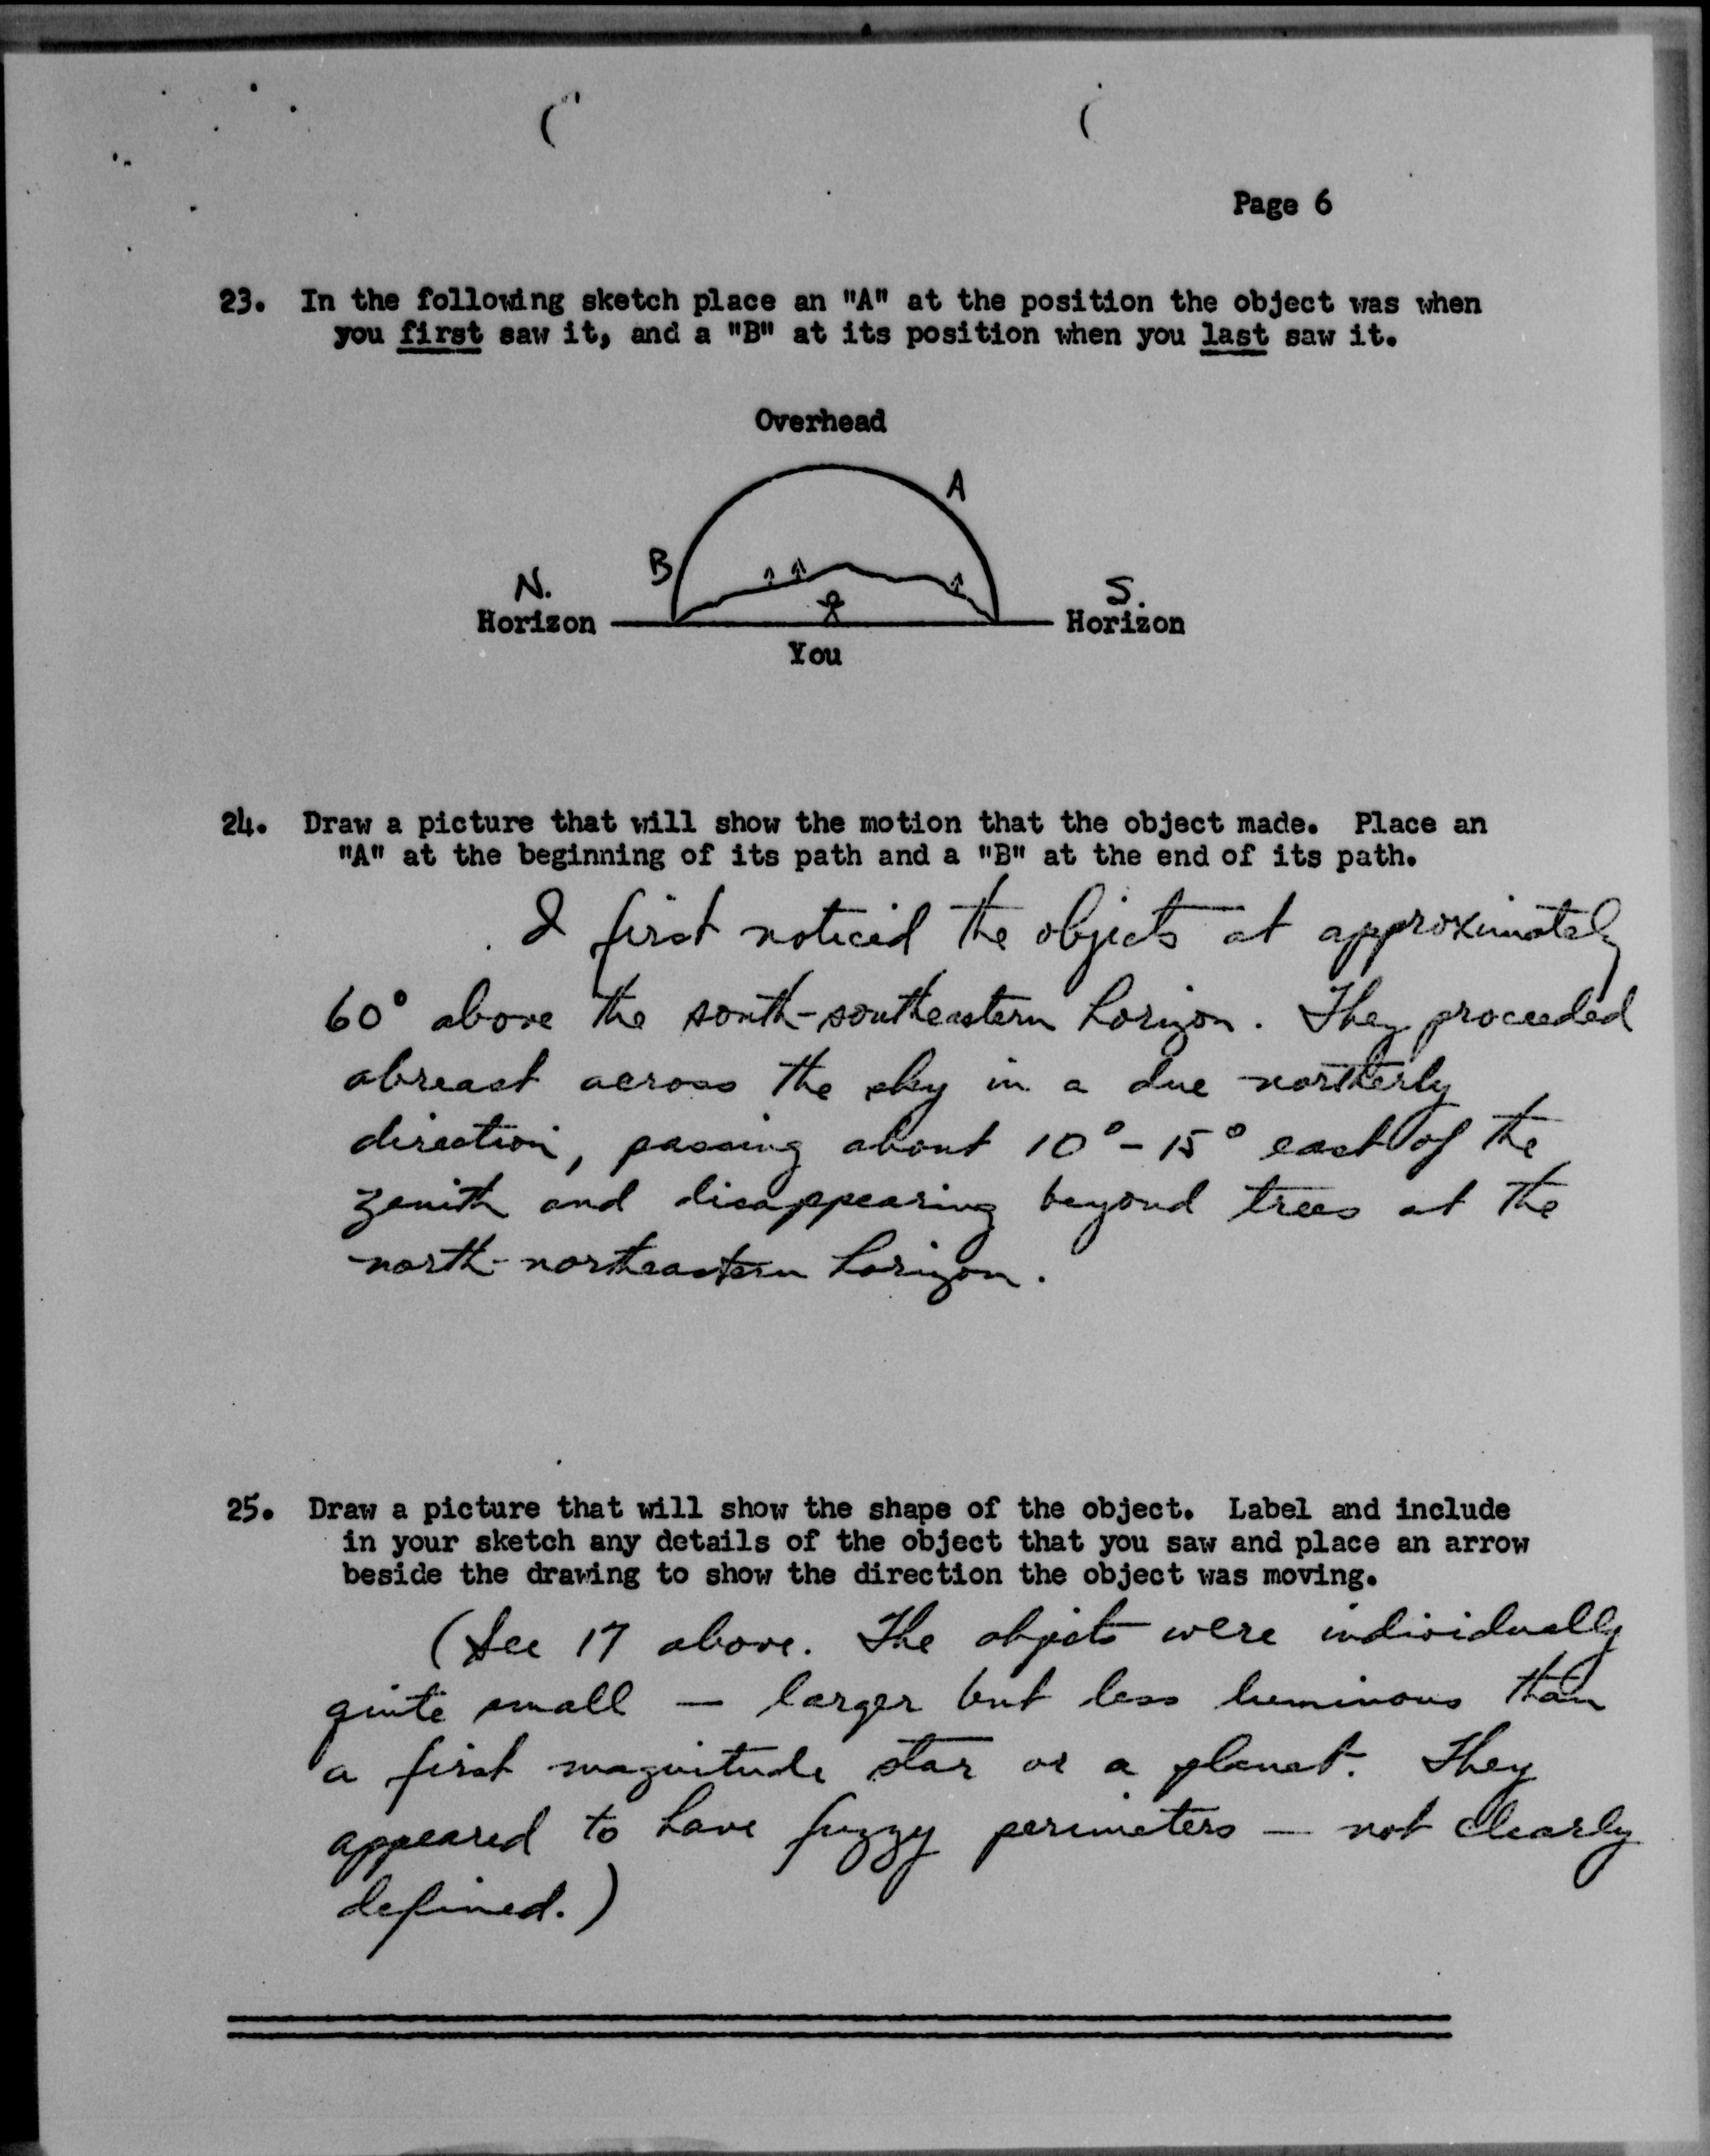 Page 6
23. In the following sketch place an "A" at the position the object was when
you first saw it, and a "B" at its position when you last saw it.
Overhead
A
B
N.
S.
Horizon
Horizon
You
24. Draw a picture that will show the motion that the object made. Place an
"A" at the beginning of its path and a "B" at the end of its path.
I first noticed the objects at approximately
60° above the south-southeastern horizon. They proceeded
abreast across the sky in a due northerly
direction, passing about 10° - 15° east of the
zenith and disappearing beyond trees at the
north-northeastern horizon.
25. Draw a picture that will show the shape of the object. Label and include
in your sketch any details of the object that you saw and place an arrow
beside the drawing to show the direction the object was moving.
(See 17 above. The objects were individually
quite small — larger but less luminous than
a first magnitude star or a planet. They
appeared to have fuzzy perimeters — not clearly
defined.)